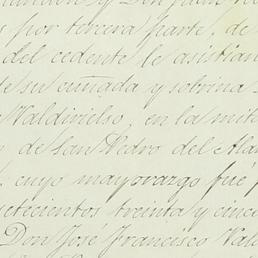 y Don Juan
por tercera parte, de
del cedente le asistian
de su cuñada y sobrina
Valdivielso, en la mita
de San Pedro del Ala
cuyo mayorazgo fué f
setecientos treinta y cinco
Don José Francisco Vald